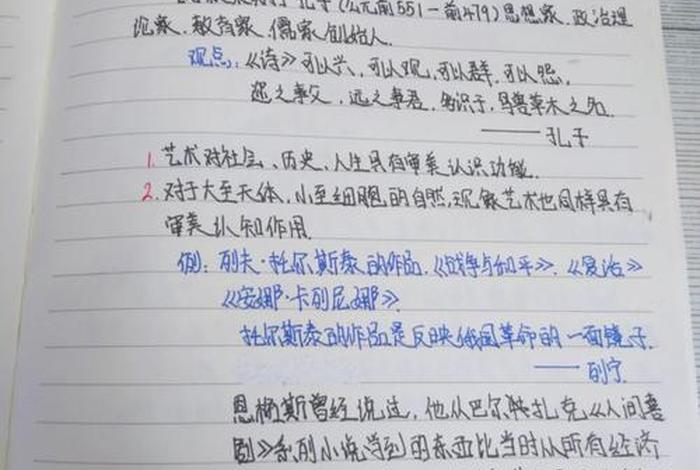 孔子(公元前551-前479)思想家、政治理
论家、教育家、儒家创始人.
观点:《诗》可以兴,可以观,可以群,可以怨,
迩之事父,远之事君,多识于鸟兽草木之名.
——孔子
1. 艺术对社会、历史、人生具有审美认识功能.
2. 对于大至天体,小至细胞的自然,现象艺术也同样具有
审美认知作用.
例:列夫·托尔斯泰的作品.《战争与和平》.《复活》
《安娜·卡列尼娜》.
托尔斯泰的作品是反映俄国革命的一面镜子.
——列宁.
恩格斯曾经说过,他从巴尔扎克《人间喜
剧》系列小说学到的东西比当时从所有经济